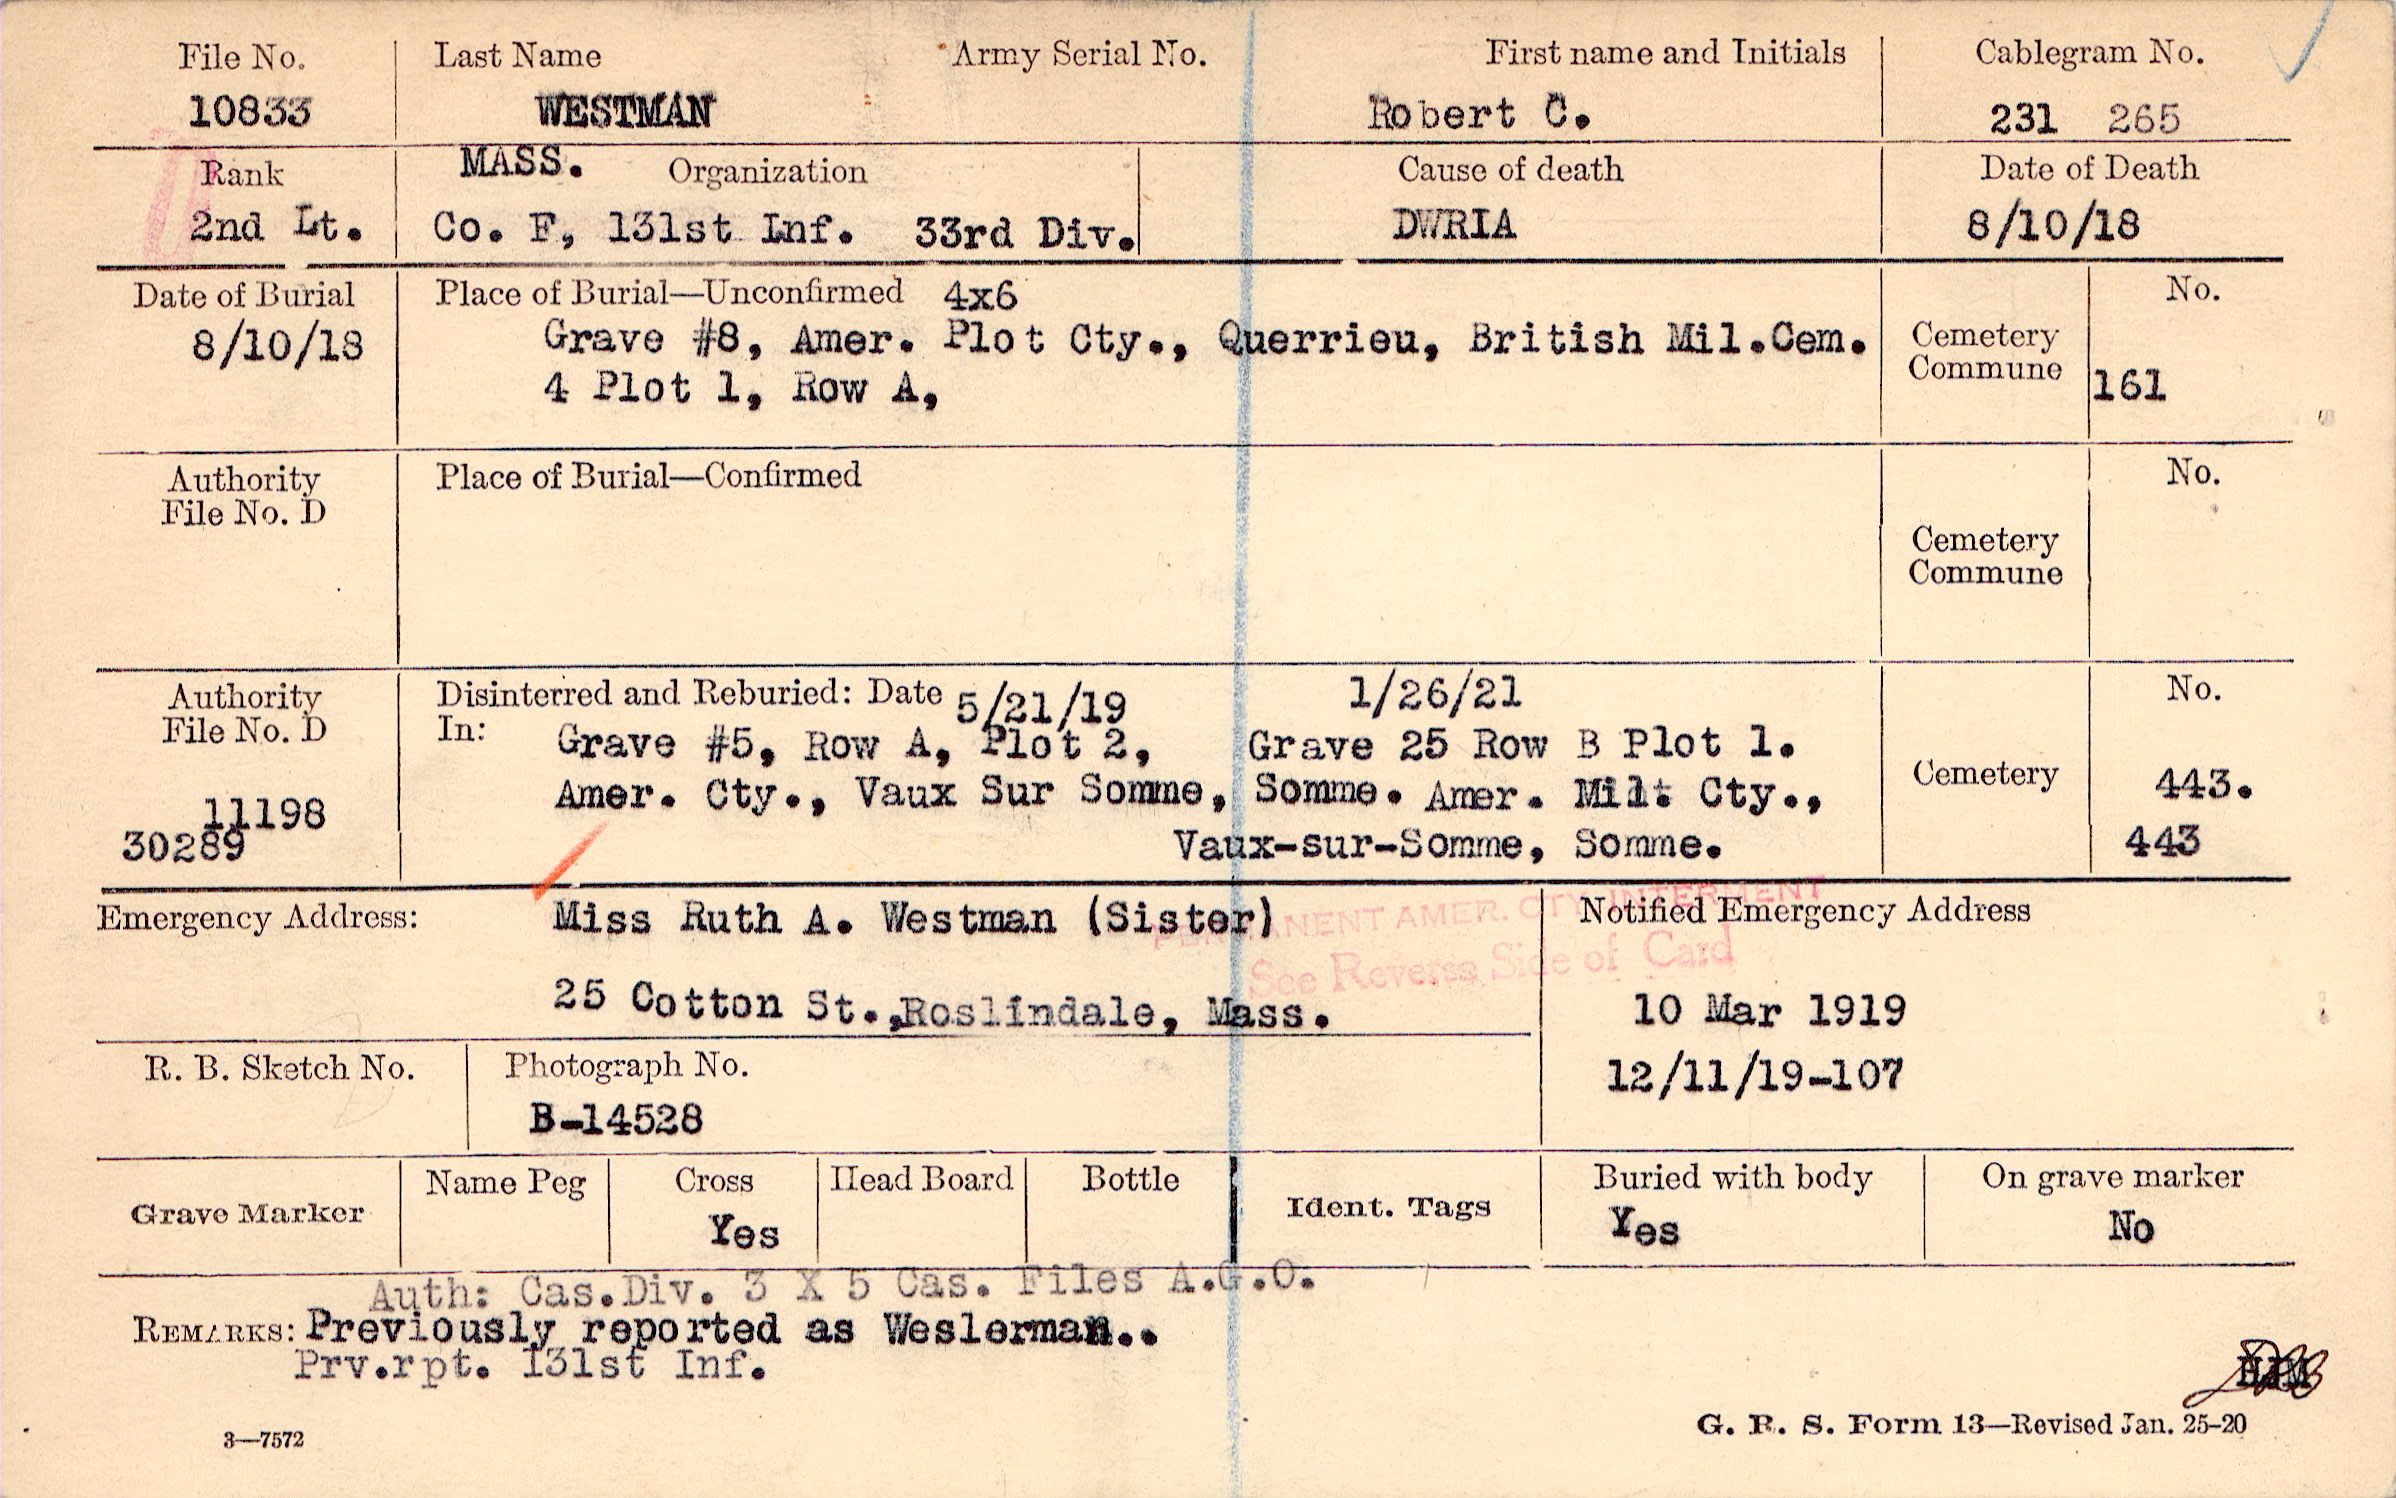 File No. Last Name Army Serial No. First name and Initials Cablegram No.
10833 WESTMAN Robert C. 231 265
Rank MASS. Organization Cause of death Date of Death
2nd Lt. Co. F, 131st Inf. 33rd Div. DWRIA 8/10/18
Date of Burial Place of Burial—Unconfirmed 4x6 No.
8/10/18 Grave #8, Amer. Plot Cty., Querrieu, British Mil.Cem. Cemetery
Commune
4 Plot 1, Row A, 161
Authority Place of Burial—Confirmed No.
File No. D
Cemetery
Commune
Authority Disinterred and Reburied: Date 5/21/19 1/26/21 No.
File No. D In: Grave #5, Row A, Plot 2, Grave 25 Row B Plot 1.
11198 Amer. Cty., Vaux Sur Somme, Somme. Amer. Milt Cty., Cemetery 443.
30289 Vaux-sur-Somme, Somme. 443
PERMANENT AMER. CTY. INTERMENT
See Reverse Side of Card
Emergency Address: Miss Ruth A. Westman (Sister) Notified Emergency Address
25 Cotton St.,Roslindale, Mass. 10 Mar 1919
R. B. Sketch No. Photograph No. 12/11/19-107
B-14528
Grave Marker Name Peg Cross Head Board Bottle Ident. Tags Buried with body On grave marker
Yes Yes No
Auth: Cas.Div. 3 X 5 Cas. Files A.G.O.
REMARKS: Previously reported as Weslerman..
Prv.rpt. 131st Inf.
3—7572 G. R. S. Form 13—Revised Jan. 25-20